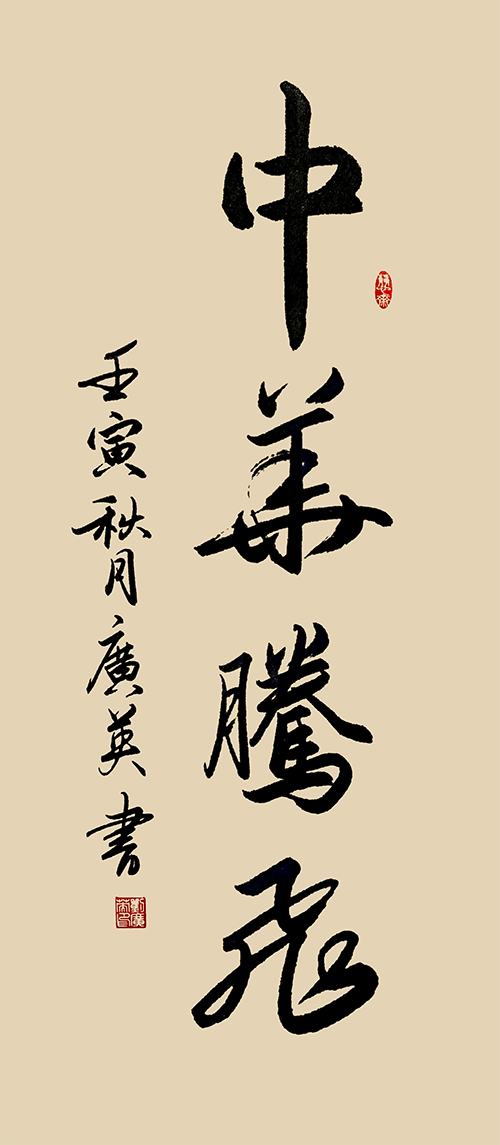 中華騰飛
壬寅秋月廣英書